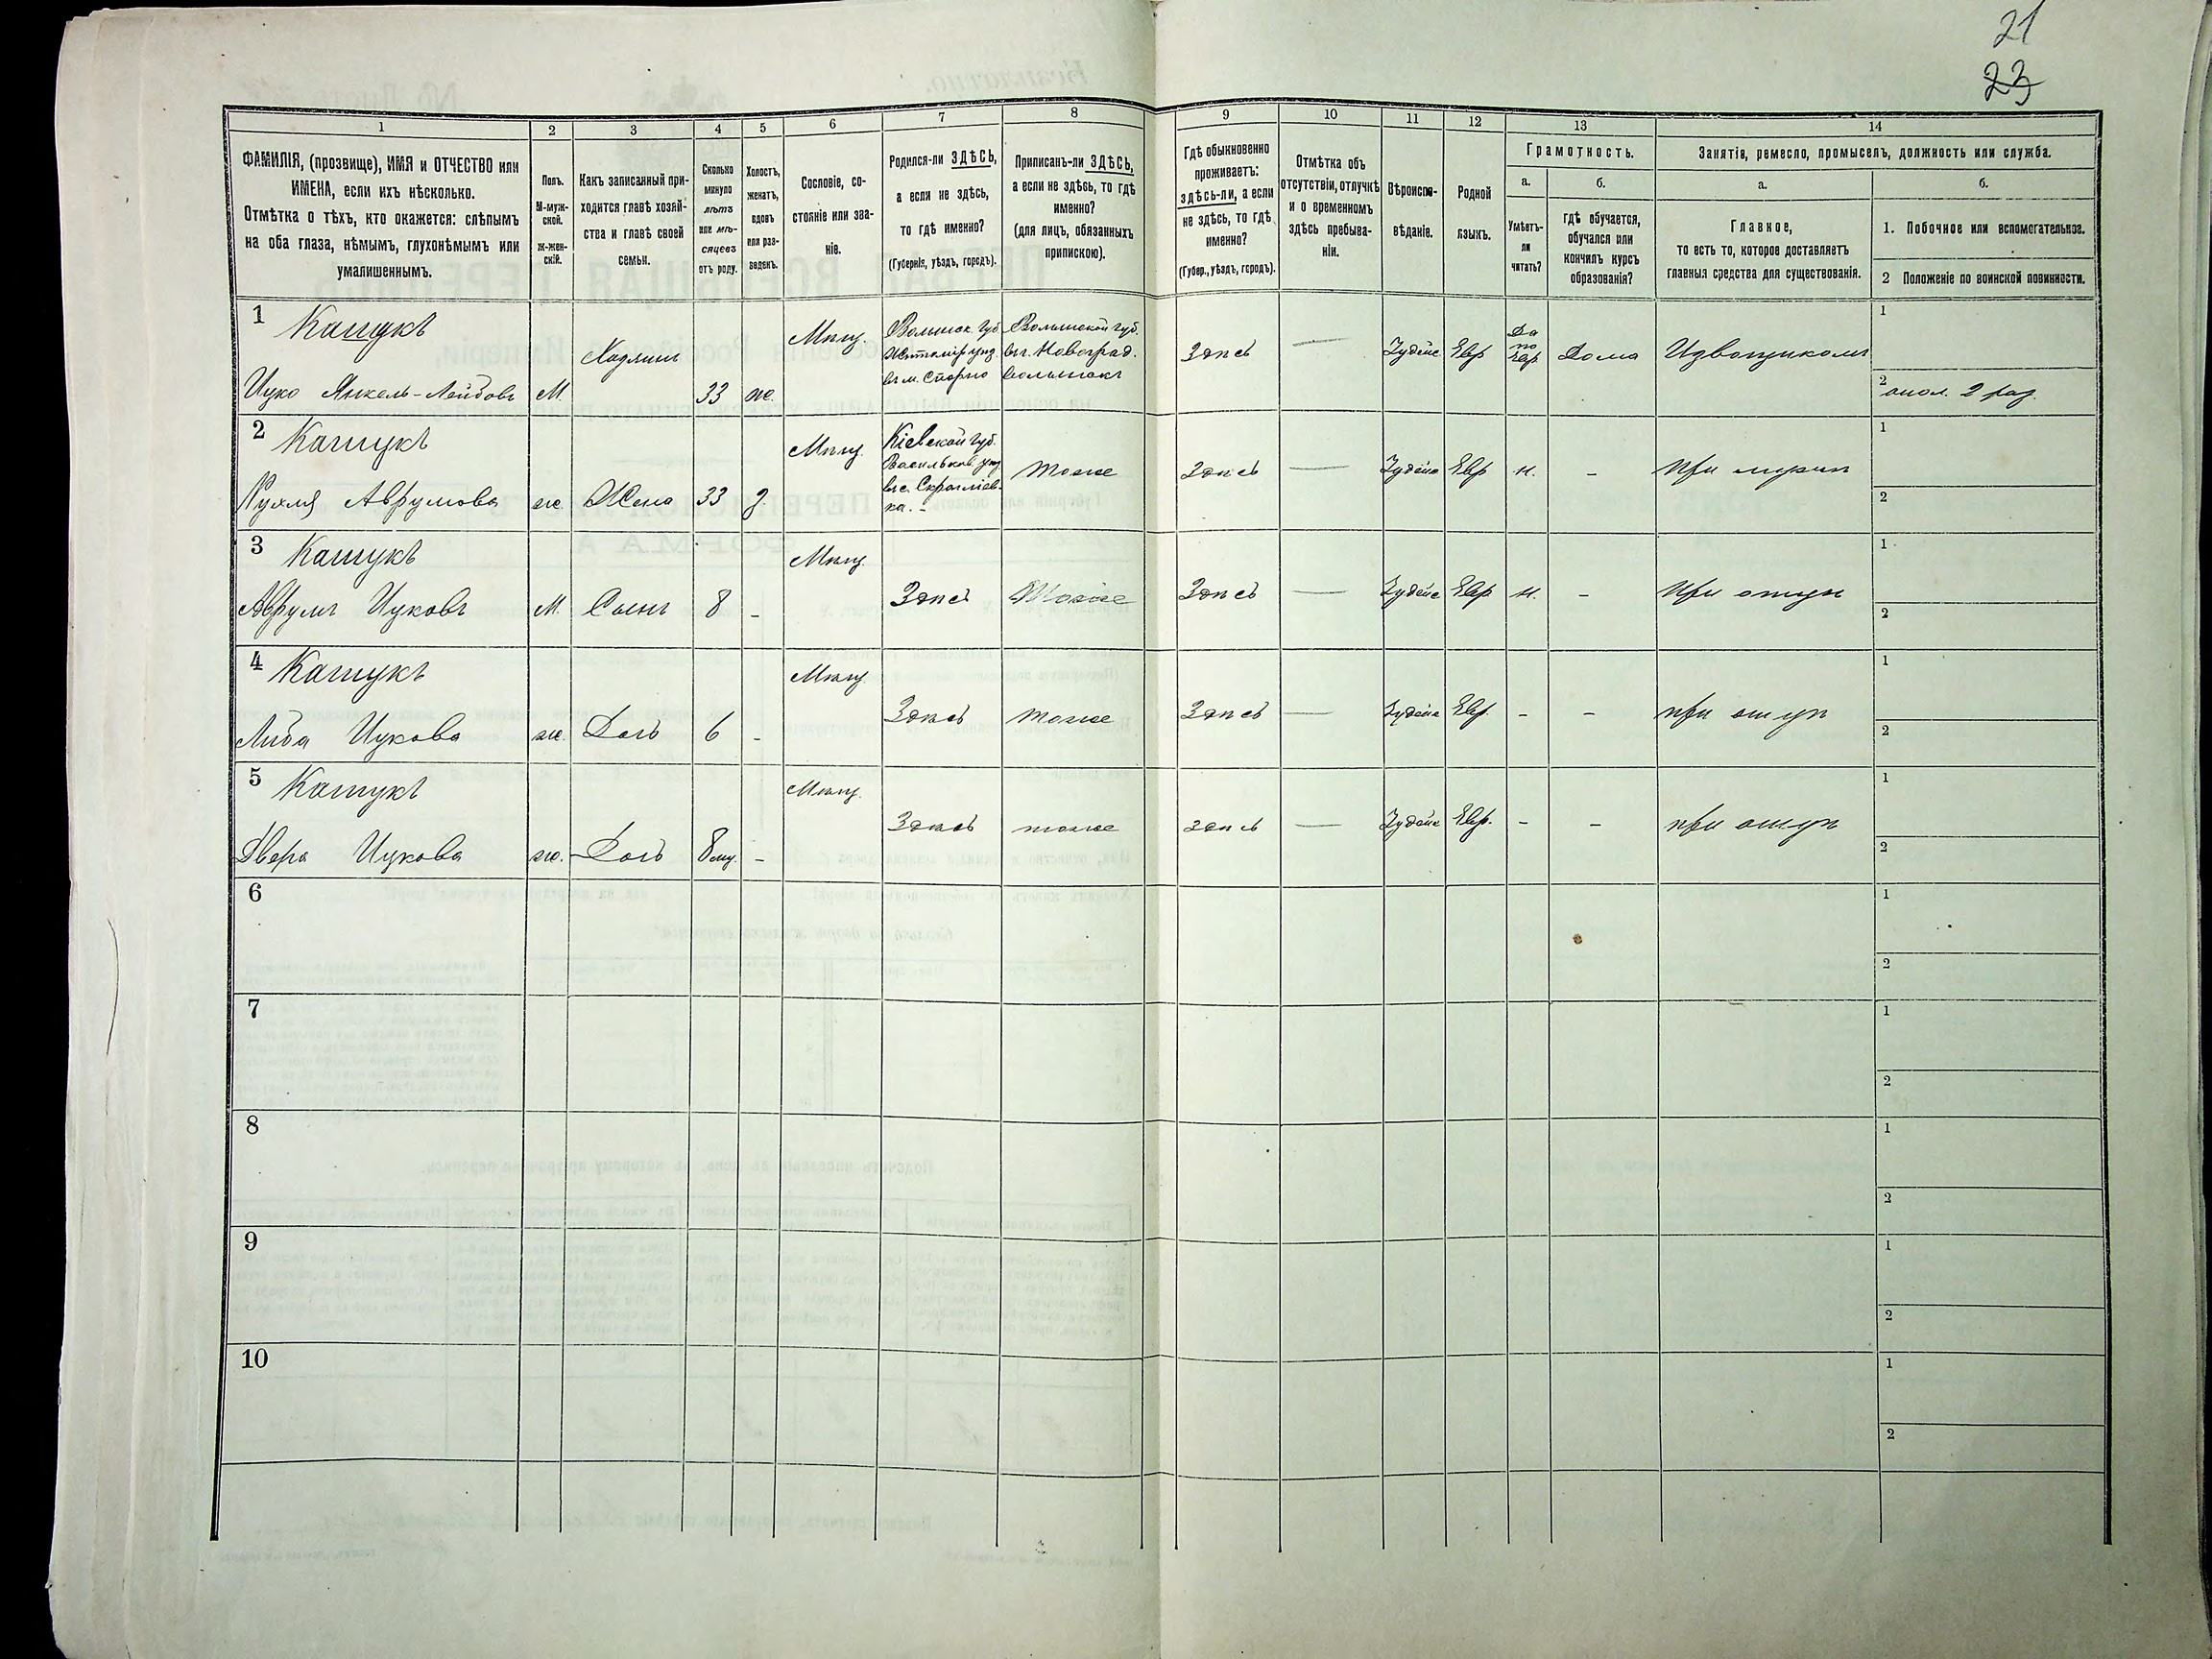 21
23
1 2 3 4 5 6 7 8 9 10 11 12 13 14
ФАМИЛІЯ, (прозвище), ИМЯ и ОТЧЕСТВО или
ИМЕНА, если ихъ нѣсколько.
Отмѣтка о тѣхъ, кто окажется: слѣпымъ
на оба глаза, нѣмымъ, глухонѣмымъ или
умалишеннымъ.
Полъ.
М-муж-
ской.
Ж-жен-
скій.
Какъ записанный при-
ходится главѣ хозяй-
ства и главѣ своей
семьи.
Сколько
минуло
лѣтъ
или мѣ-
сяцевъ
отъ роду.
Холостъ,
женатъ,
вдовъ
или раз-
веденъ.
Сословіе, со-
стояніе или зва-
ніе.
Родился-ли ЗДѢСЬ,
а если не здѣсь,
то гдѣ именно?
(Губернія, уѣздъ, городъ).
Приписанъ-ли ЗДѢСЬ,
а если не здѣсь, то гдѣ
именно?
(для лицъ, обязанныхъ
припискою).
Гдѣ обыкновенно
проживаетъ:
здѣсь-ли, а если
не здѣсь, то гдѣ
именно?
(Губер., уѣздъ, городъ).
Отмѣтка объ
отсутствіи, отлучкѣ
и о временномъ
здѣсь пребыва-
ніи.
Вѣроиспо-
вѣданіе.
Родной
языкъ.
Грамотность.
а.
Умѣетъ-
ли
читать?
б.
гдѣ обучается,
обучался или
кончилъ курсъ
образованія?
Занятіе, ремесло, промыселъ, должность или служба.
а.
Главное,
то есть то, которое доставляетъ
главныя средства для существованія.
б.
1. Побочное или вспомогательное.
2 Положеніе по воинской повинности.
1 Кашукъ
Ицко Янкель-Лейбовъ
М.
Хозяинъ
33
ж.
Мѣщ.
Волынск. губ
Житомір уѣз.
въ м.
Волынской губ.
въ г. Новоград.
Волынскъ
Здѣсь
—
Іудейс
Евр
Да
по
Евр
Дома
Извощикомъ
1
2 опол. 2 раз.
2 Кашукъ
Рухля Аврумова
ж.
Жена
33
Мѣщ.
Кіевской губ.
Васильков. уѣз
въ с.
тоже
Здѣсь
—
Іудейс
Евр
н.
-
При мужѣ
1
2
3 Кашукъ
Аврумъ Ицковъ
М.
Сынъ
8
-
Мѣщ.
Здѣсь
Тоже
Здѣсь
—
Іудейс
Евр
н.
-
При отцѣ
1
2
4 Кашукъ
Ицкова
ж.
Дочь
6
-
Мѣщ
Здѣсь
тоже
Здѣсь
—
Іудейс
Евр.
-
-
при отцѣ
1
2
5 Кашукъ
Двера Ицкова
ж.
Дочь
8
-
Мѣщ.
Здѣсь
тоже
здѣсь
—
Іудейс
Евр.
-
-
при отцѣ
1
2
6
1
2
7
1
2
8
1
2
9
1
2
10
1
2